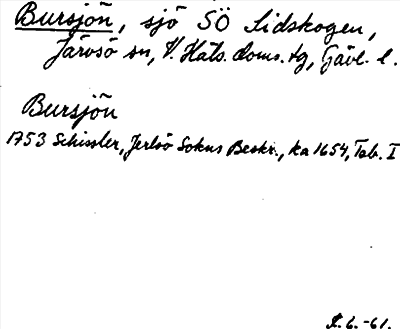 Bursjön, sjö SÖ Lidskogen,
Järvsö sn, V. Häls. doms. tg, Gävl. l.
Bursjön
1753 Schissler, Jerfsö Sokns Beskr., ka 1654, Tab. I
2.6.-61.